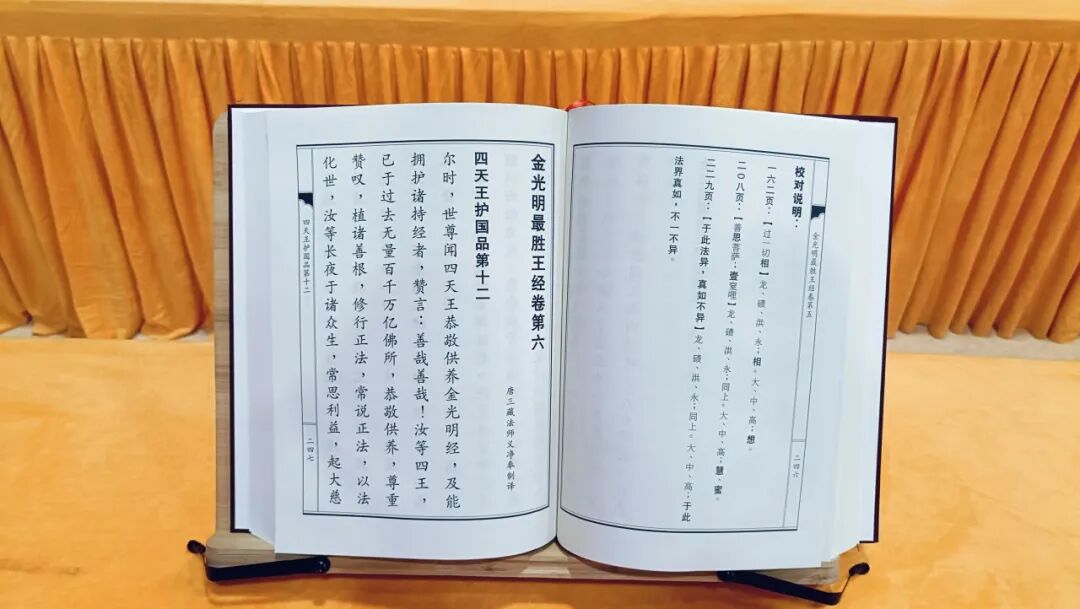 金光明最胜王经卷第五
二四六
校对说明：
一六二页：【过一切相】龙、碛、洪、永；相。大、中、高；想。
二〇八页：【善思菩萨；壹室哩】龙、碛、洪、永；同上。大、中、高；慧、蜜。
二二九页：【于此法异，真如不异】龙、碛、洪、永；同上。大、中、高；于此
法界真如，不一不异。
金光明最胜王经卷第六
唐三藏法师义净奉制译
四天王护国品第十二
尔时，世尊闻四天王恭敬供养金光明经，及能
拥护诸持经者，赞言：善哉善哉！汝等四王，
已于过去无量百千万亿佛所，恭敬供养，尊重
赞叹，植诸善根，修行正法，常说正法，以法
化世，汝等长夜于诸众生，常思利益，起大慈
四天王护国品第十二
二四七